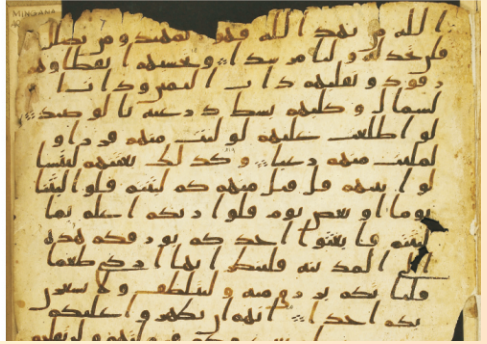 MINGANA
الله من يهد الله فهو المهتد ومن يضلل
فلن تجد له وليا مرشدا وتحسبهم ايقظا وهم
رقود ونقلبهم ذات اليمين وذات ا
لشمال وكلبهم بسط ذرعيه بالوصيد
لو اطلعت عليهم لوليت منهم فررا و
لملئت منهم رعبا وكذلك بعثنهم ليتسا
لوا بينهم قل قيل منهم كم لبثتم قلوا لبثنا
يوما او بعض يوم قلوا ربكم اعلم بما
لبثتم فابعثوا احدكم بورقكم هذه
الى المدينة فلينظر ايها ازكى طعما
فلياتكم برزق منه وليتلطف ولا يشعرن
بكم احدا انهم ان يظهروا عليكم